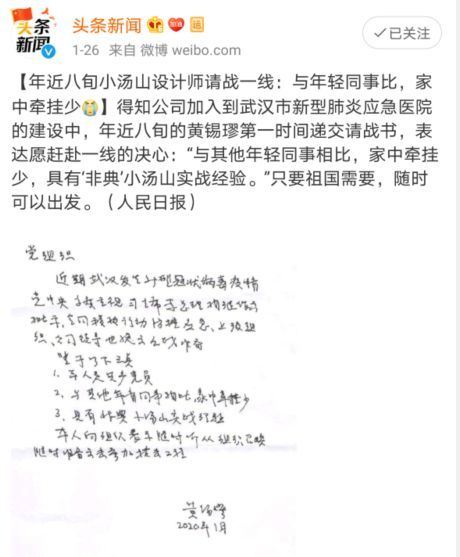 头条新闻
头条
新闻
1-26 来自 微博 weibo.com
已关注
【年近八旬小汤山设计师请战一线：与年轻同事比，家
中牵挂少😭】得知公司加入到武汉市新型肺炎应急医院
的建设中，年近八旬的黄锡璆第一时间递交请战书，表
达愿赶赴一线的决心：“与其他年轻同事相比，家中牵挂
少，具有‘非典’小汤山实战经验。”只要祖国需要，随时
可以出发。（人民日报）
党组织
近期武汉发生新型冠状病毒疫情
党中央
批示，全国积极行动
织、公司领导也
鉴于以下三点
1. 本人是共产党员
2. 与其他年青同事相比，家中牵挂少
3. 具有非典小汤山实战经验
本人向组织表示随时听从组织召唤
随时准备出去参加抗击工程
黄锡璆
2020年1月